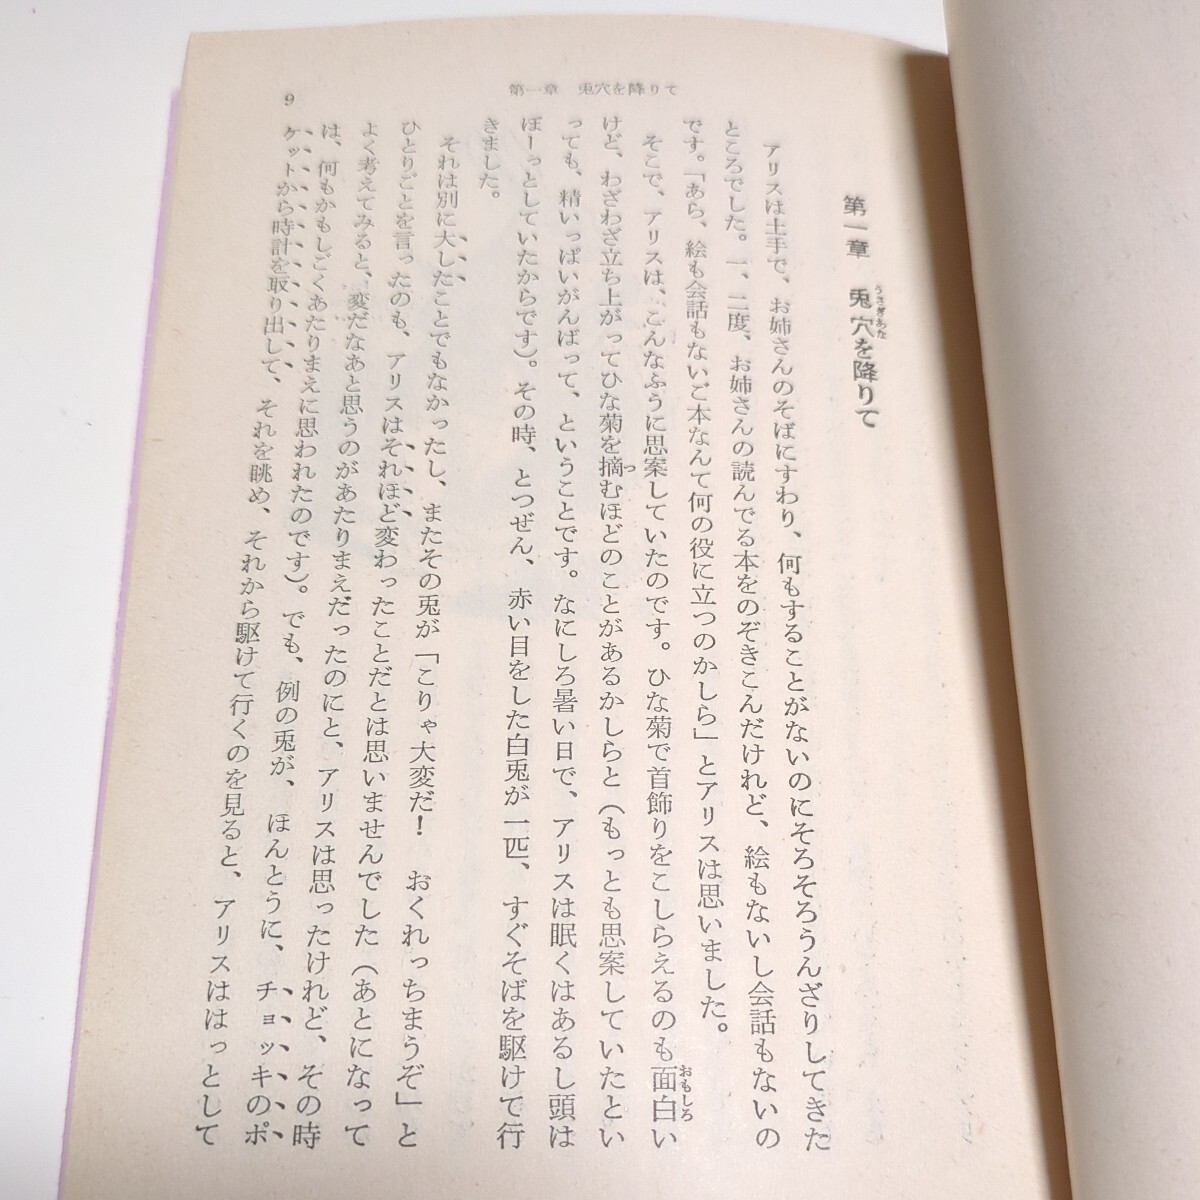 第一章　兎穴を降りて
9
第一章　兎穴を降りて
うさぎあな
アリスは土手で、お姉さんのそばにすわり、何もすることがないのにそろそろうんざりしてきた
ところでした。一、二度、お姉さんの読んでる本をのぞきこんだけれど、絵もないし会話もないの
です。「あら、絵も会話もないご本なんて何の役に立つのかしら」とアリスは思いました。
そこで、アリスは、こんなふうに思案していたのです。ひな菊で首飾りをこしらえるのも面白い
おもしろ
けど、わざわざ立ち上がってひな菊を摘むほどのことがあるかしらと（もっとも思案していたとい
つ
っても、精いっぱいがんばって、ということです。なにしろ暑い日で、アリスは眠くはあるし頭は
ぼーっとしていたからです）。その時、とつぜん、赤い目をした白兎が一匹、すぐそばを駆けて行
きました。
それは別に大したことでもなかったし、またその兎が「こりゃ大変だ！　おくれっちまうぞ」と
ひとりごとを言ったのも、アリスはそれほど変わったことだとは思いませんでした（あとになって
よく考えてみると、変だなあと思うのがあたりまえだったのにと、アリスは思ったけれど、その時
は、何もかもしごくあたりまえに思われたのです）。でも、例の兎が、ほんとうに、チョッキのポ
ケットから時計を取り出して、それを眺め、それから駆けて行くのを見ると、アリスははっとして